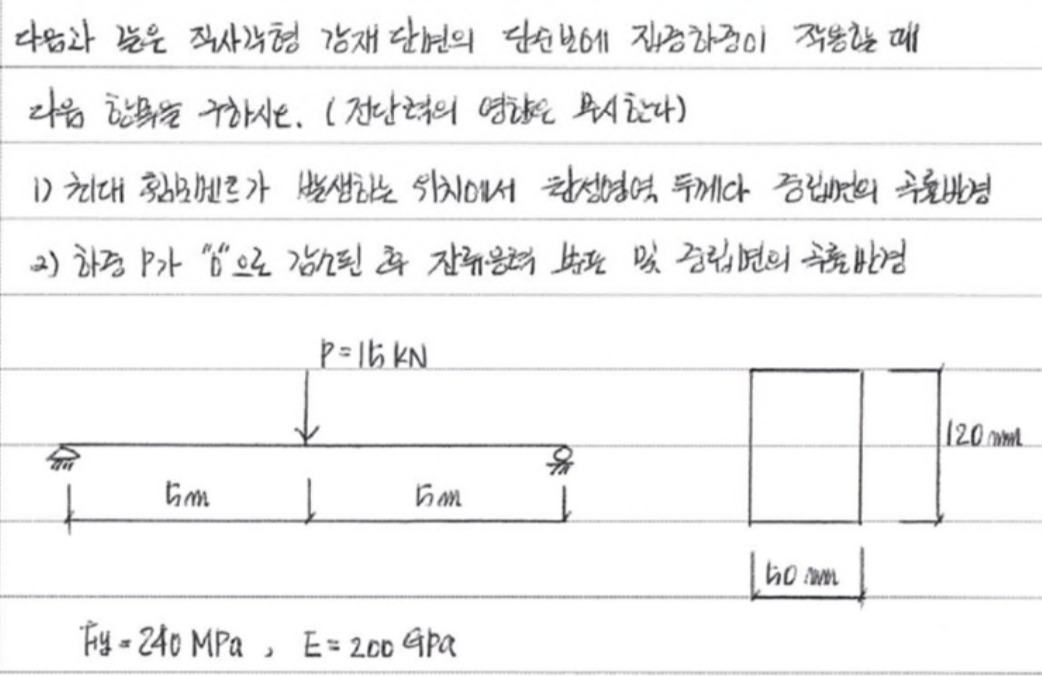 다음과 같은 직사각형 강재 단면의 단순보에 집중하중이 작용할 때
다음 항목을 구하시오. (전단력의 영향은 무시한다)
1) 최대 휨모멘트가 발생하는 위치에서 탄성영역 두께와 중립면의 곡률반경
2) 하중 P가 "0"으로 감소된 후 잔류응력 분포 및 중립면의 곡률반경
P=15 kN
120 mm
5m
5m
50 mm
Fy = 240 MPa , E = 200 GPa